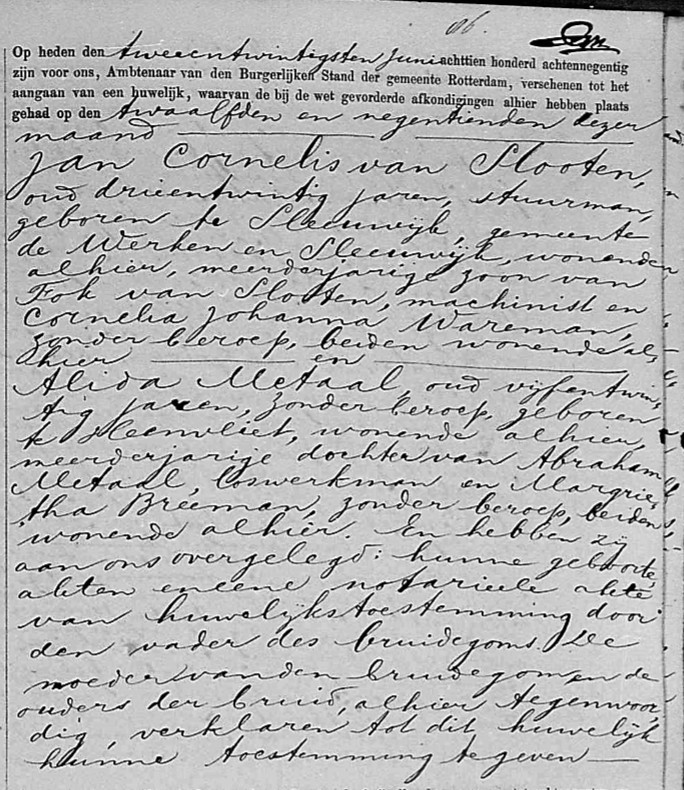 Op heden den tweeentwintigsten Juni achttien honderd achtennegentig
zijn voor ons, Ambtenaar van den Burgerlijken Stand der gemeente Rotterdam, verschenen tot het
aangaan van een huwelijk, waarvan de bij de wet gevorderde afkondigingen alhier hebben plaats
gehad op den twaalfden en negentienden dezer
maand
Jan Cornelis van Slooten,
oud drieentwintig jaren, stuurman,
geboren te Sleeuwijk, gemeente
de Werken en Sleeuwijk, wonende
alhier, meerderjarige zoon van
Fok van Slooten, machinist en
Cornelia Johanna Wareman,
zonder beroep, beiden wonende al-
hier en
Alida Metaal, oud vijfentwin-
tig jaren, zonder beroep, geboren
te Heenvliet, wonende alhier,
meerderjarige dochter van Abraham
Metaal, loswerkman en Margrie-
tha Breeman, zonder beroep, beiden
wonende alhier. En hebben zij
aan ons overgelegd: hunne geboorte-
akten en eene notarieele akte
van huwelijkstoestemming door
den vader des bruidegoms. De
moeder van den bruidegom en de
ouders der bruid, alhier tegenwoor-
dig, verklaren tot dit huwelijk
hunne toestemming te geven